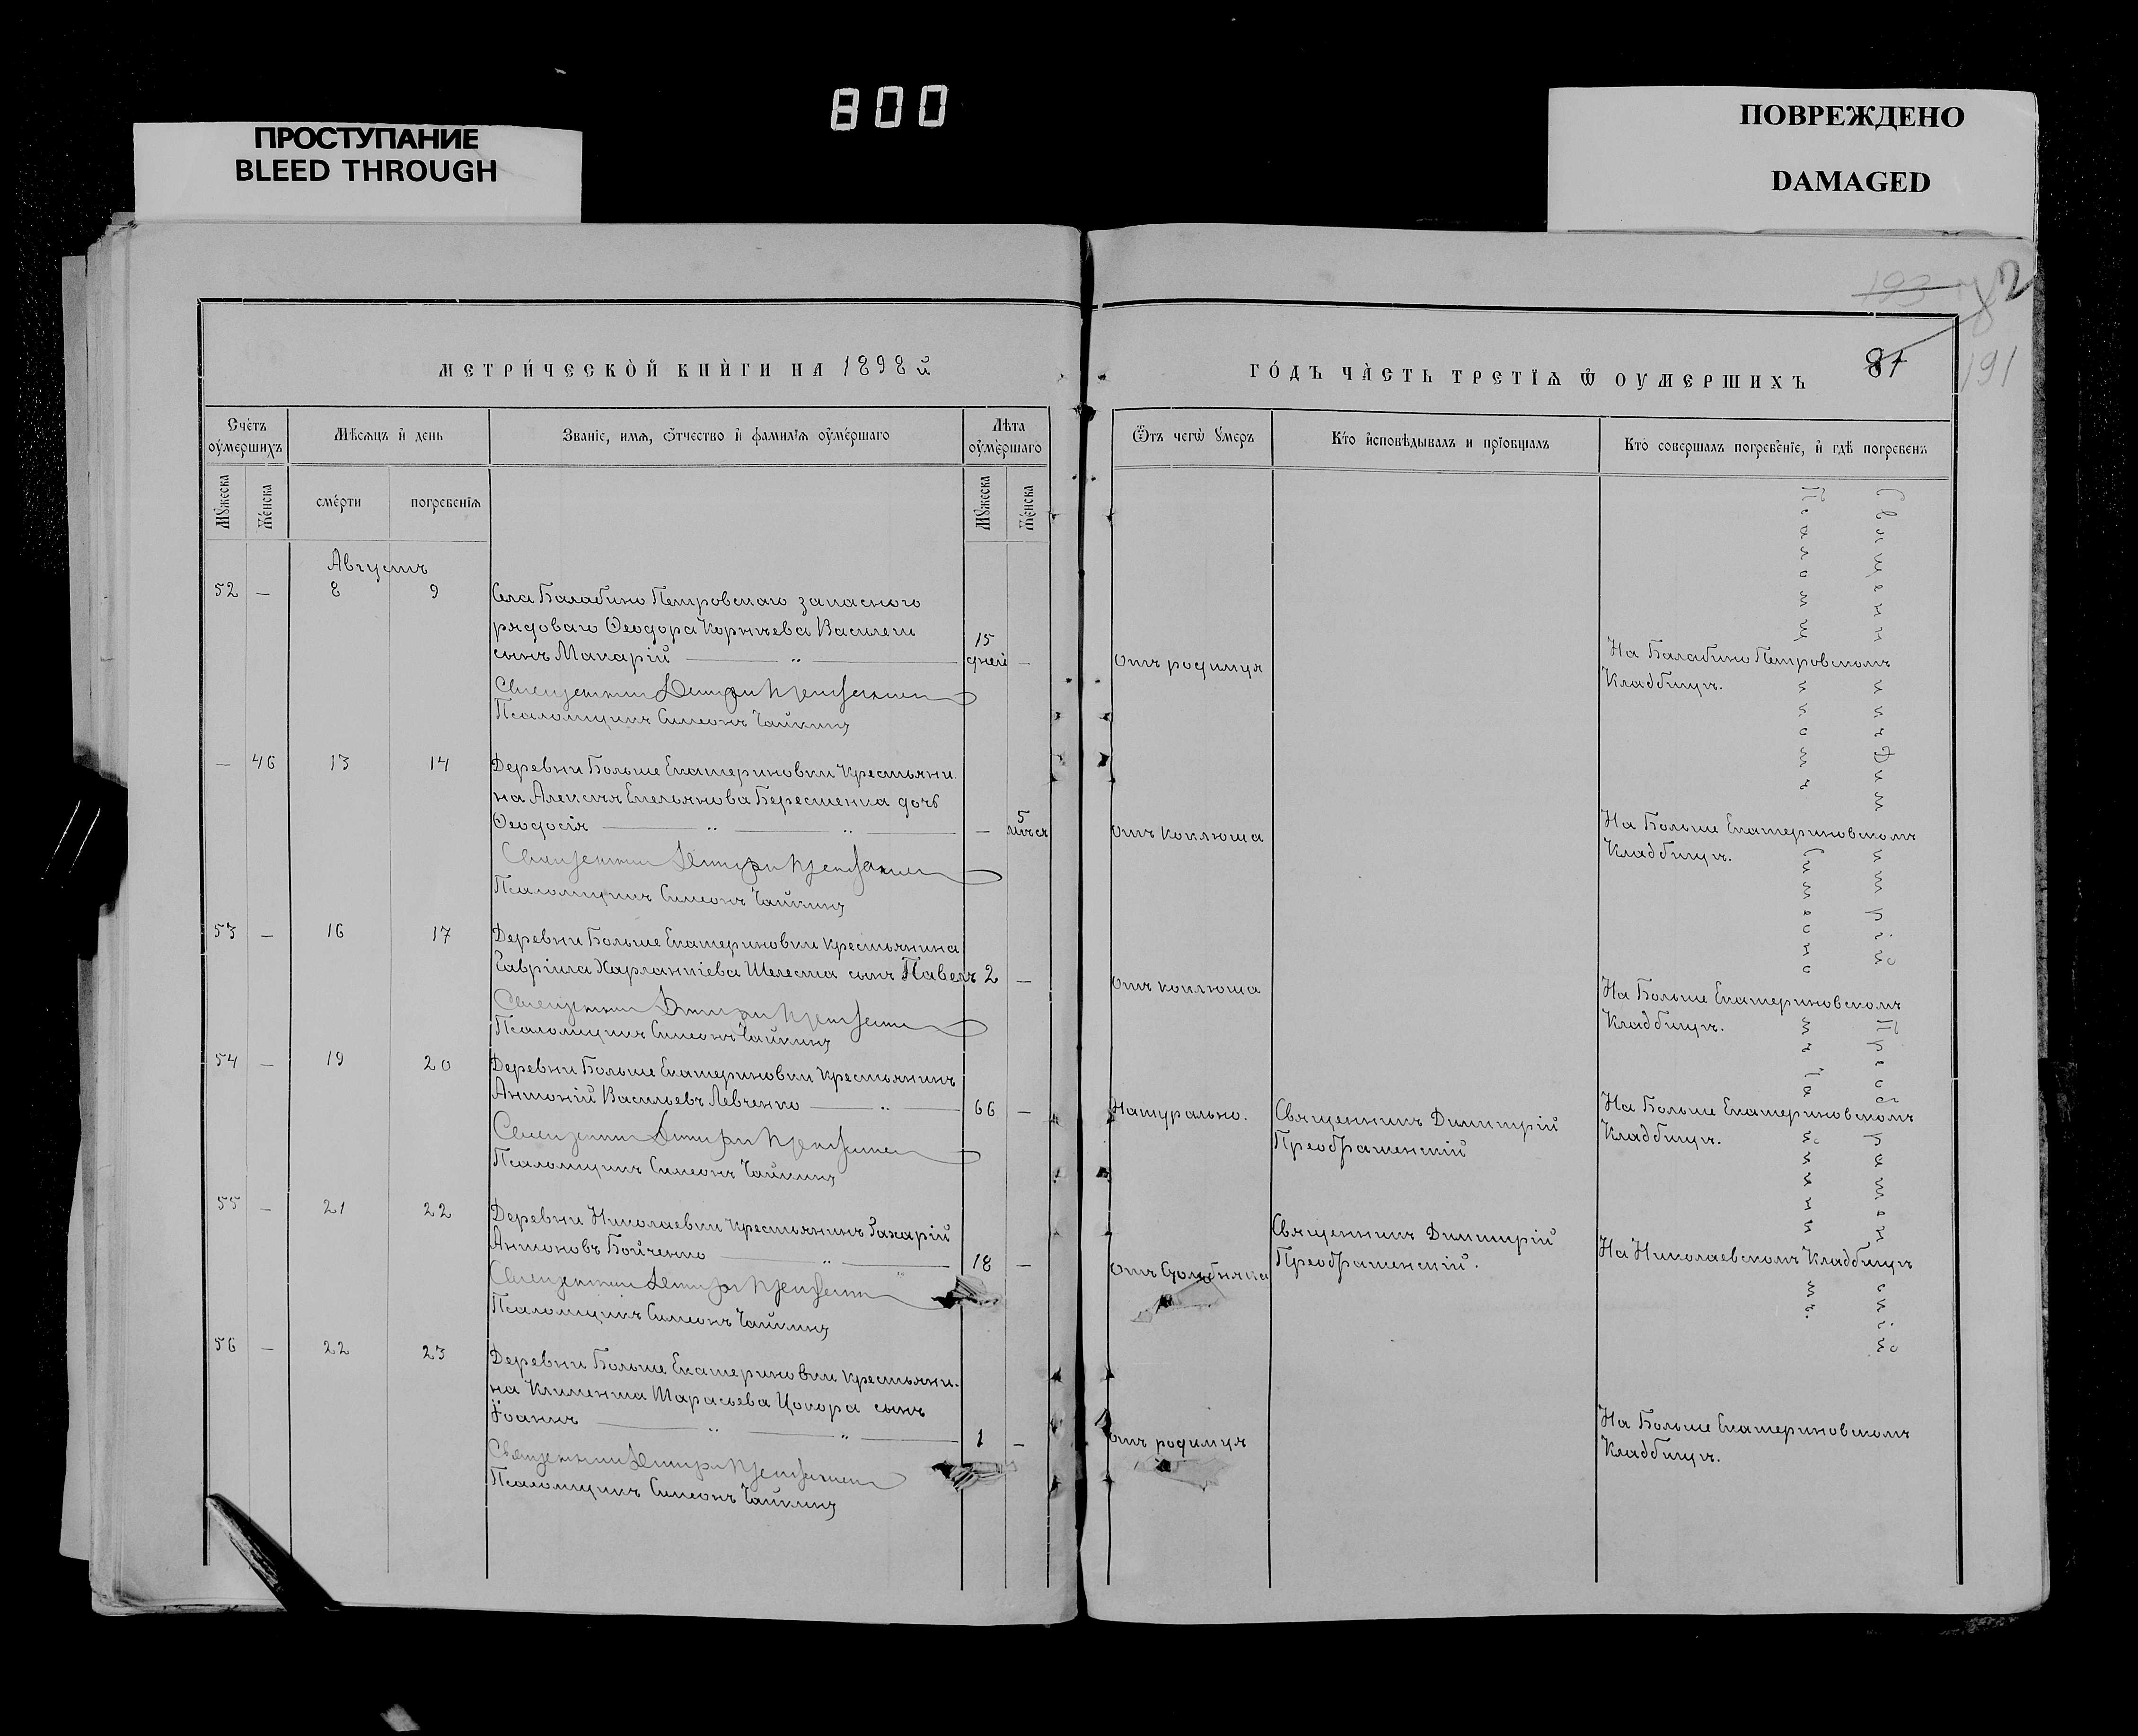 800
ПРОСТУПАНИЕ
BLEED THROUGH
ПОВРЕЖДЕНО
DAMAGED
193
2
191
81
МЕТРИ́ЧЕСКО̀Й КНЍГИ НА 1898й
ГО́ДЪ ЧА̀СТЬ ТРЕТІѦ Ѡ҆ ОУМЕРШИХЪ
Счетъ оумершихъ
Мѣсяцъ и день
Званіе, имя, отчество и фамилія оумершаго
Лѣта оумершаго
Отъ чегѡ оумеръ
Кто исповѣдывалъ и пріобщалъ
Кто совершалъ погребеніе, и гдѣ погребенъ
Мꙋжеска
Женска
смерти
погребенія
Мꙋжеска
Женска
Августъ
52 — 8 9 Села Балабино Петровскаго запасного
рядоваго Ѳеодора Корнѣева Василеги
сынъ Макарій 15 дней — Отъ родимця
На Балабино Петровскомъ
Кладбищѣ.
Священникъ Димитрій Преображенскій
Псаломщикъ Симеонъ Чайкинъ
— 46 13 14 Деревни Больше Екатериновки крестьяни
на Алексѣя Емельянова Берестенка дочь
Ѳеодосія — 5 мѣся Отъ коклюша
На Больше Екатериновскомъ
Кладбищѣ.
Священникъ Димитрій Преображенскій
Псаломщикъ Симеонъ Чайкинъ
53 — 16 17 Деревни Больше Екатериновки крестьянина
Гавріила Харлампіева Шелеста сынъ Павелъ 2 — Отъ коклюша
На Больше Екатериновскомъ
Кладбищѣ.
Священникъ Димитрій Преображенскій
Псаломщикъ Симеонъ Чайкинъ
54 — 19 20 Деревни Больше Екатериновки крестьянинъ
Антоній Васильевъ Левченко 66 — Натурально.
Священникъ Димитрій
Преображенскій
На Больше Екатериновскомъ
Кладбищѣ.
Священникъ Димитрій Преображенскій
Псаломщикъ Симеонъ Чайкинъ
55 — 21 22 Деревни Николаевки крестьянинъ Захарій
Антоновъ Бойченко 18 — Отъ Столбняка
Священникъ Димитрій
Преображенскій.
На Николаевскомъ Кладбищѣ
Священникъ Димитрій Преображенскій
Псаломщикъ Симеонъ Чайкинъ
56 — 22 23 Деревни Больше Екатериновки крестьяни-
на Климента Тарасьева Цокора сынъ
Іоаннъ 1 — Отъ родимця
На Больше Екатериновскомъ
Кладбищѣ.
Священникъ Димитрій Преображенскій
Псаломщикъ Симеонъ Чайкинъ
Священникъ Димитрій Преображенскій
Псаломщикъ Симеонъ Чайкинъ.